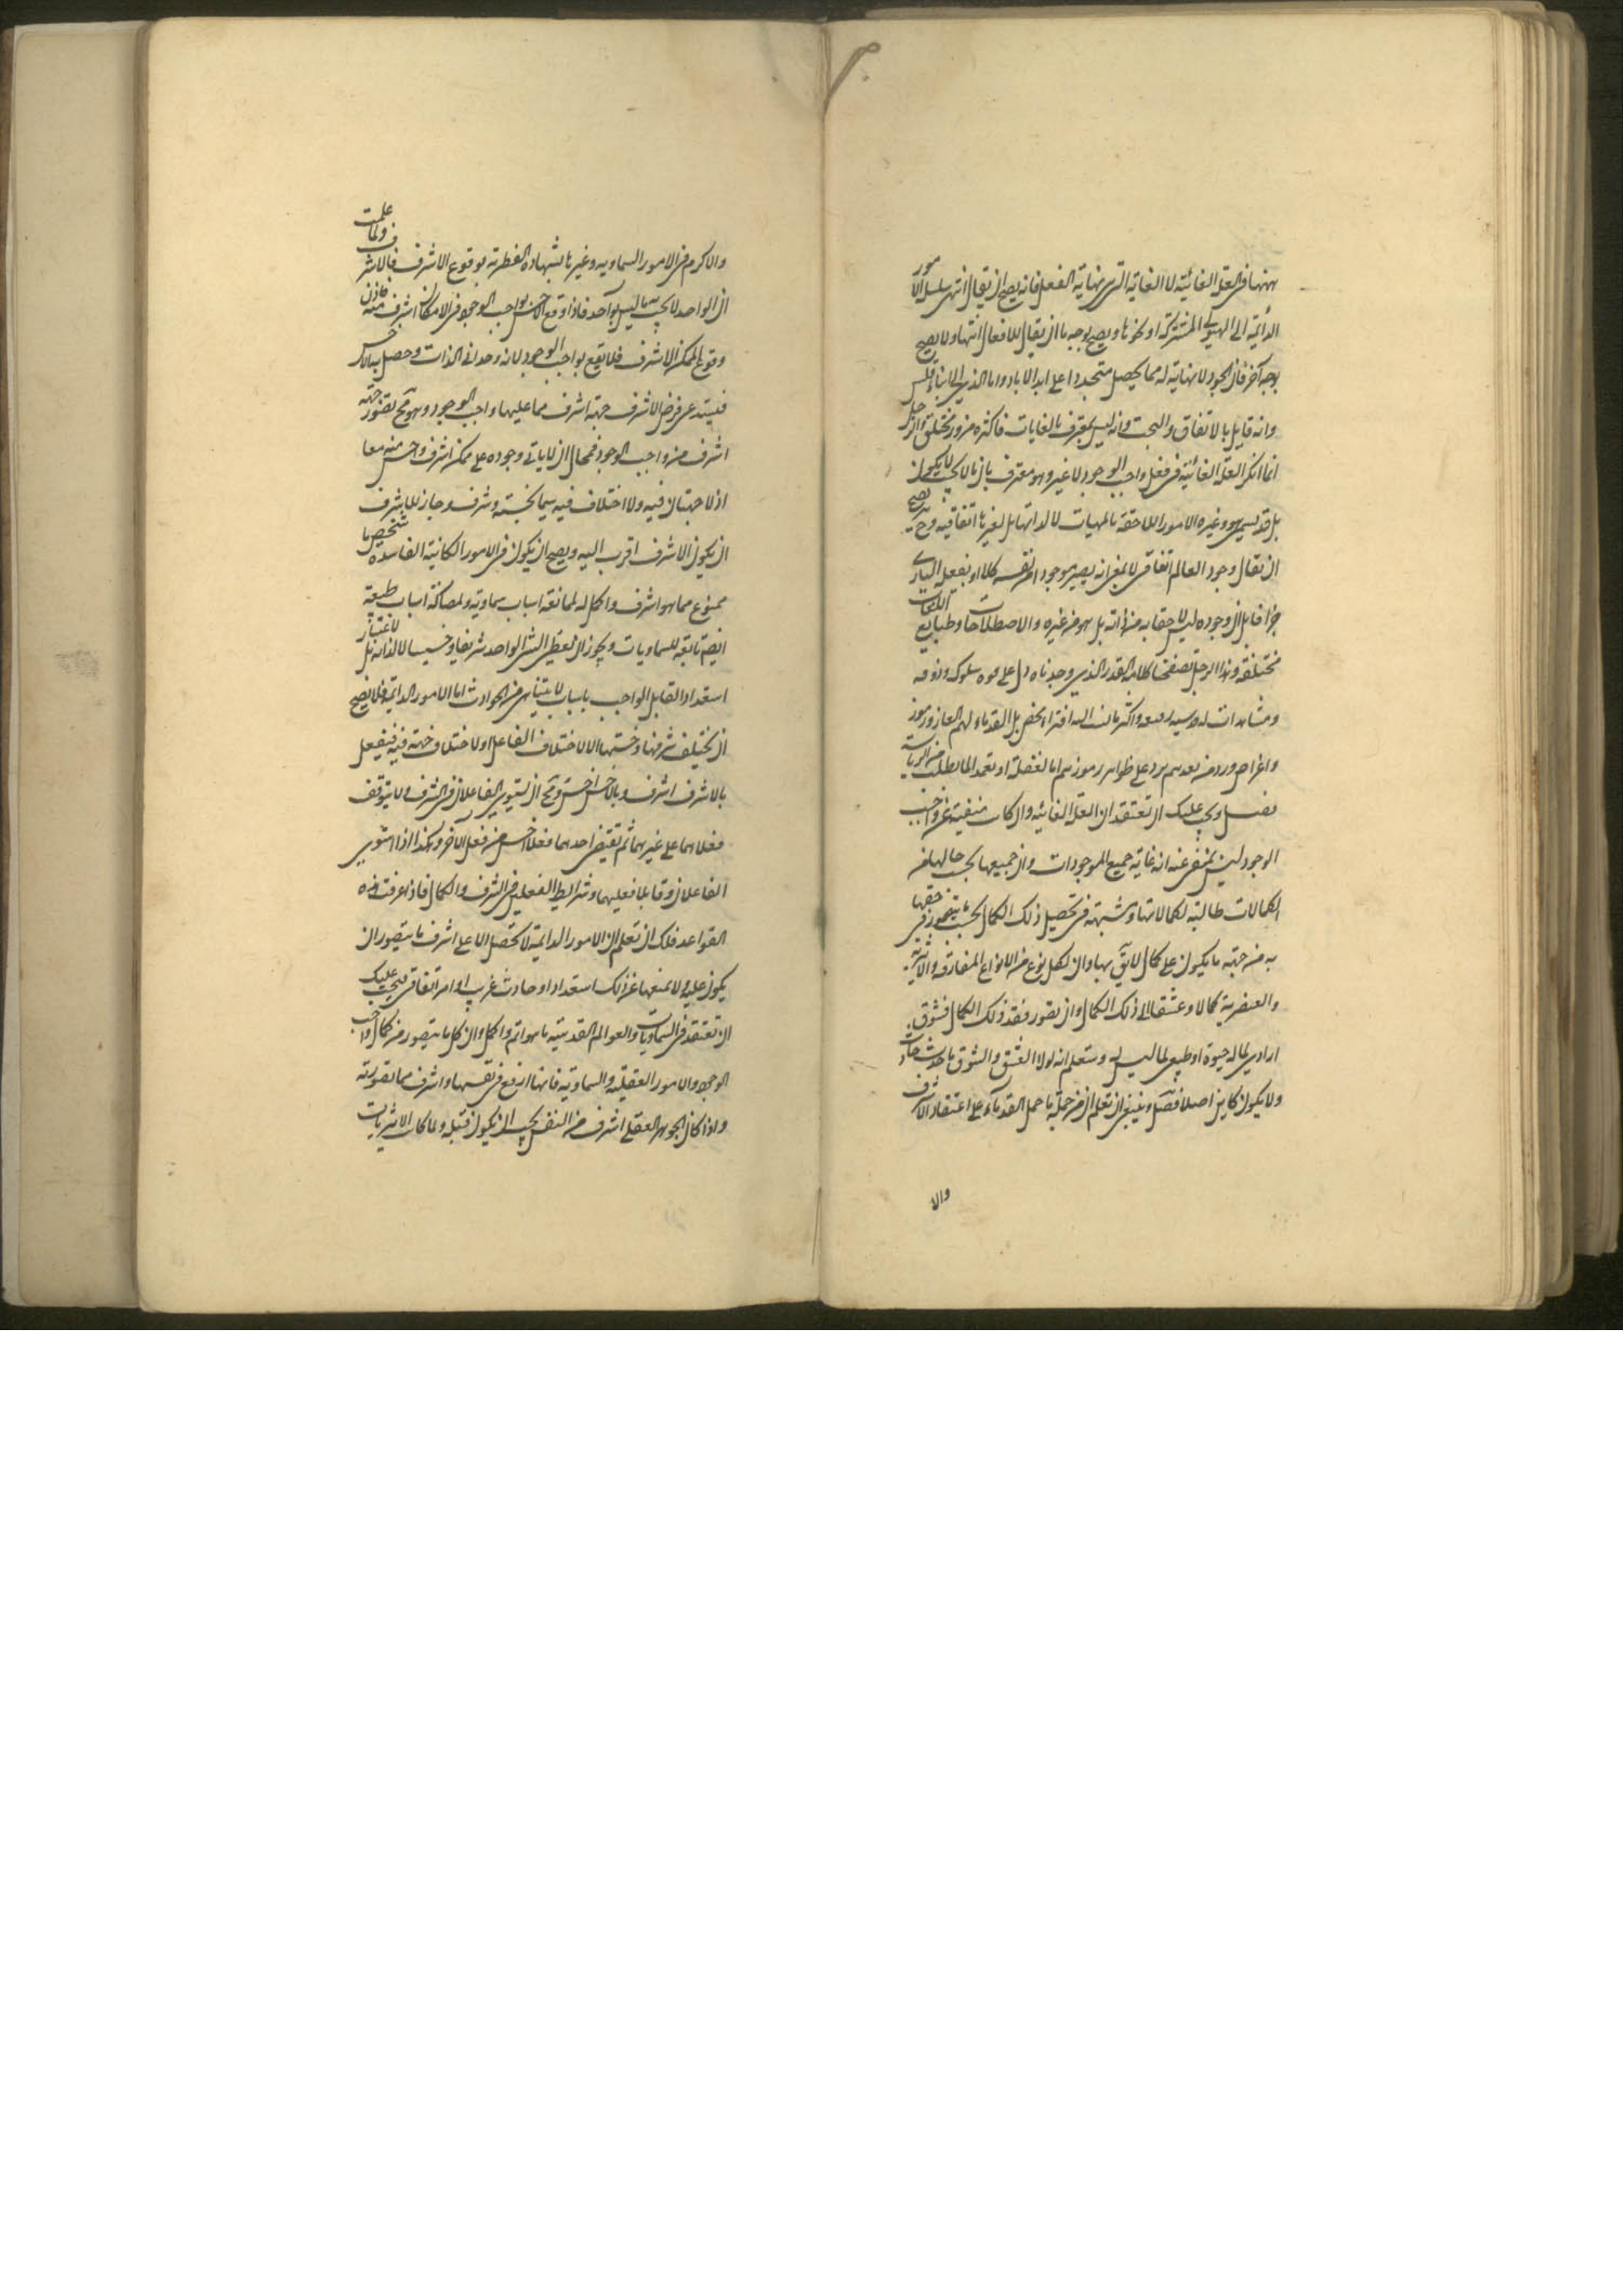 ههنا فى العلة الغائية لا الغاية التى هى نهاية الفعل فانه يصح ان يقال انتهى سلسلة الامور
الدائمة الى الهيولى المشتركة او نحوها ويصح بوجه ما ان يقال للافعال انتهاء ولا يصح
بوجه آخر فان الجود لا نهاية له مما يحصل متجددا على ابد الاباد واما الذى
وانه قايل بالاتفاق والبخت وانه ليس بمعترف بالغايات فاكثره مزور مختلق والرجل
انما انكر العلة الغائية فى فعل واجب الوجود لا غير وهو معترف بان ما لا يجب لا يكون
بل قد يسمى هو وغيره الامور اللاحقة بالمهيات لا لذاتها بل لغيرها اتفاقية وح يصح
ان يقال وجود العالم اتفاقى لا بمعنى انه يصير موجودا من نفسه كلا او بفعله البارى
جزافا بل ان وجوده ليس لاحقا به من ذاته بل هو من غيره والاصطلاحات وطبايع اللغات
مختلفة وهذا الرجل تصفحنا كلامه القدر الذى وجدناه دل على قوة سلوكه وذوقه
ومشاهدات له قدسية رفيعة واكثر ما نسب اليه افتراء محض بل القدماء لهم الغاز ورموز
واغراض ورد من بعدهم يرد على ظواهر رموزهم اما لغفلة او تعمدا لما يطلب من الرياسة
فصل ويجب عليك ان تعتقد ان العلة الغائية وان كانت منفية عن واجب
الوجود ليس بمنفى عنه انه غاية جميع الموجودات وان جميعها بحسب ما لها من
الكمالات طالبة لكمالاتها ومتشبهة فى تحصيل ذلك الكمال بحسب ما يتصور فى حقها
به من جهة ما يكون على كمال لايق بها وان لكل نوع من الانواع المفارقة والاثيرية
والعنصرية كمالا وعشقا الى ذلك الكمال وان تصور فقد ذلك الكمال فشوق
ارادى لما له حيوة او طبيعى لما ليس له وستعلم انه لولا العشق والشوق ما حدث حادث
ولا يكون كاين اصلا فصل وينبغى ان تعلم ان من جملة ما حمل القدماء على اعتقاد الاشرف
والا
والاكرم فى الامور السماوية وغيرها شهادة الفطرة بوقوع الاشرف فالاشرف ولما علمت
ان الواحد لا يجب به ما ليس بواحد فاذا وقع الاخس بواجب الوجود فى الامكان اشرف منه فاذن
وقوع الممكن الاشرف فلا يقع بواجب الوجود لانه وحدانى الذات وحصل به الاخس
فيستدعى فرض الاشرف جهة اشرف مما عليها واجب الوجود وهو مح تصور جهة
اشرف من واجب الوجود فمحال ان لا ياتى وجوده على ممكن اشرف واخس منه معا
اذ لا جهتان فيه ولا اختلاف فيه سيما بخسة وشرف وجاز للاشرف
ان يكون الاشرف اقرب اليه ويصح ان يكون فى الامور الكاينة الفاسدة شخص ما
ممنوع مما هو اشرف واكمل له لممانعة اسباب سماوية ولمصاكة اسباب طبيعة
ايضم تابعة للسماويات ويجوز ان تعطى الشى الواحد شريفا وخسيسا لا لذاته بل لاعتبار
استعداد القابل الواجب باسباب لا يتناهى من الحوادث اما الامور الدائمة فلا يصح
ان يختلف شرفها وخستها الا لاختلاف الفاعل او لاختلاف جهة فيه فيفعل
بالاشرف اشرف وبالاخس اخس ومح ان يستوى الفاعلان فى الشرف ولا يتوقف
فعلاهما على غيرهما ثم تقتضى احدهما فعلا اخس من فعل الاخر وهكذا اذا استوى
الفاعلان وقابلا فعليهما وشرايط الفعلين فى الشرف والكمال فاذا عرفت هذه
القواعد فلك ان تعلم ان الامور الدايمة لا تحصل الا على اشرف ما يتصور ان
يكون عليه ولا يمنعها عن ذلك استعداد او حادث غريب او امر اتفاقى فيجب عليك
ان تعتقد فى السماويات والعوالم القدسية ما هو اتم واكمل وان كل ما يتصور من كمال واجب
الوجود والامور العقلية والسماوية فانها ارفع فى نفسها واشرف مما تصورته
واذا كان الجوهر العقلى اشرف من النفس يجب ان يكون قبله ولما كانت الاثيريات